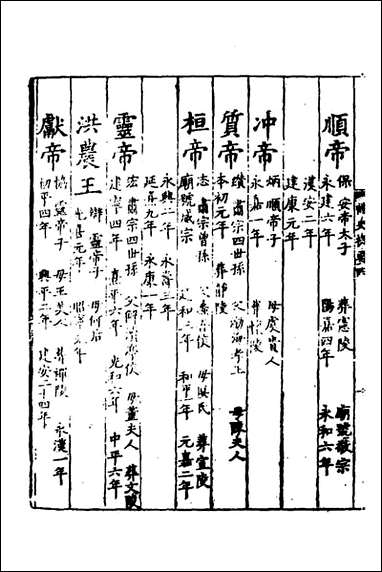 順帝
保安帝太子 葬憲陵 廟號敬宗
永建六年 陽嘉四年 永和六年
漢安二年
建康元年
冲帝
炳順帝子 母虞貴人
永嘉一年 葬懷陵
質帝
纘肅宗四世孫 父渤海孝王 母陳夫人
本初元年 葬靜陵
桓帝
志肅宗曾孫 父蠡吾侯 母匽氏 葬宣陵
廟號威宗 建和三年 和平一年 元嘉二年
永興二年 永壽三年
延熹九年 永康一年
靈帝
宏肅宗四世孫 母董夫人 葬文陵
建寧四年 熹平六年 光和六年 中平六年
洪農王
辯靈帝子 母何后
光熹元年 昭寧元年
獻帝
協靈帝子 母王美人 葬禪陵 永漢一年
初平四年 興平二年 建安二十四年